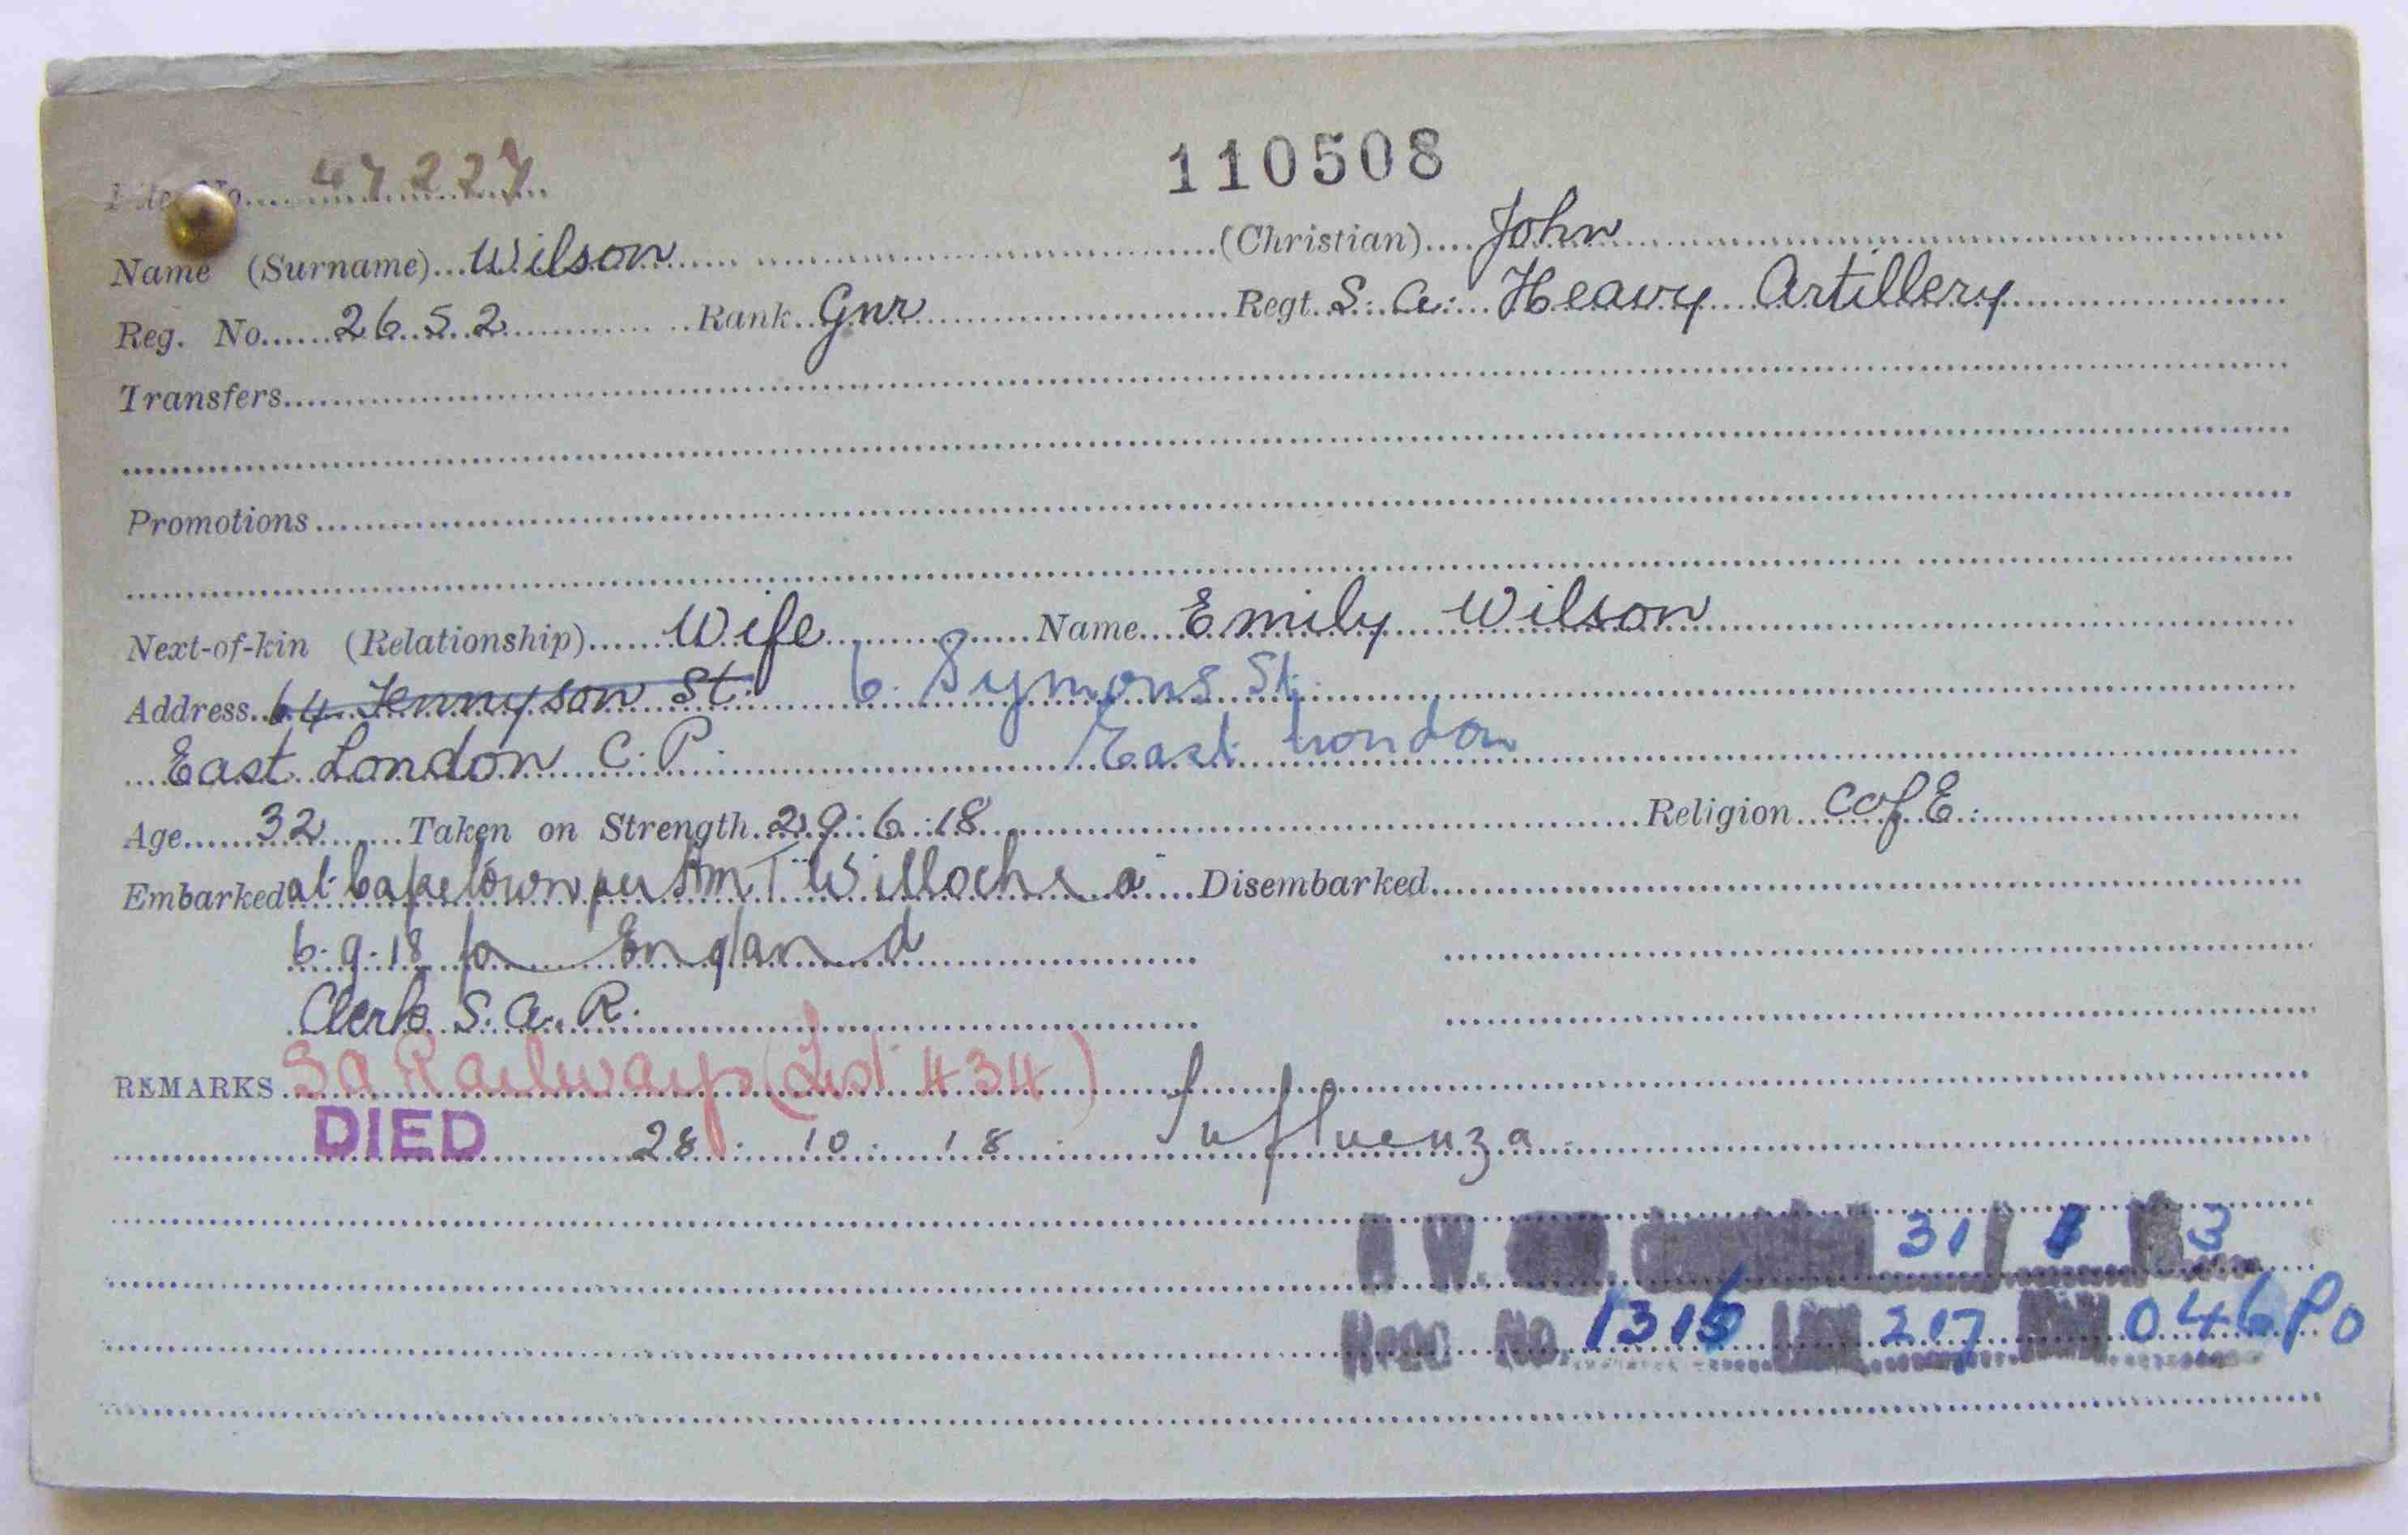 110508
File No. 47227
Name (Surname) Wilson (Christian) John
Reg. No. 2652 Rank Gnr Regt. S. A. Heavy Artillery
Transfers
Promotions
Next-of-kin (Relationship) Wife Name Emily Wilson
Address 64 Tennyson St. 6. Symons St.
East London C. P. East London
Age 32 Taken on Strength 29.6.18 Religion C of E.
Embarked at Capetown per HmT Willochra Disembarked
6.9.18 for England
Clerk S. A. R.
REMARKS SA Railways (List 434)
DIED 28. 10. 18. Influenza
31 3
No. 217 046 Po